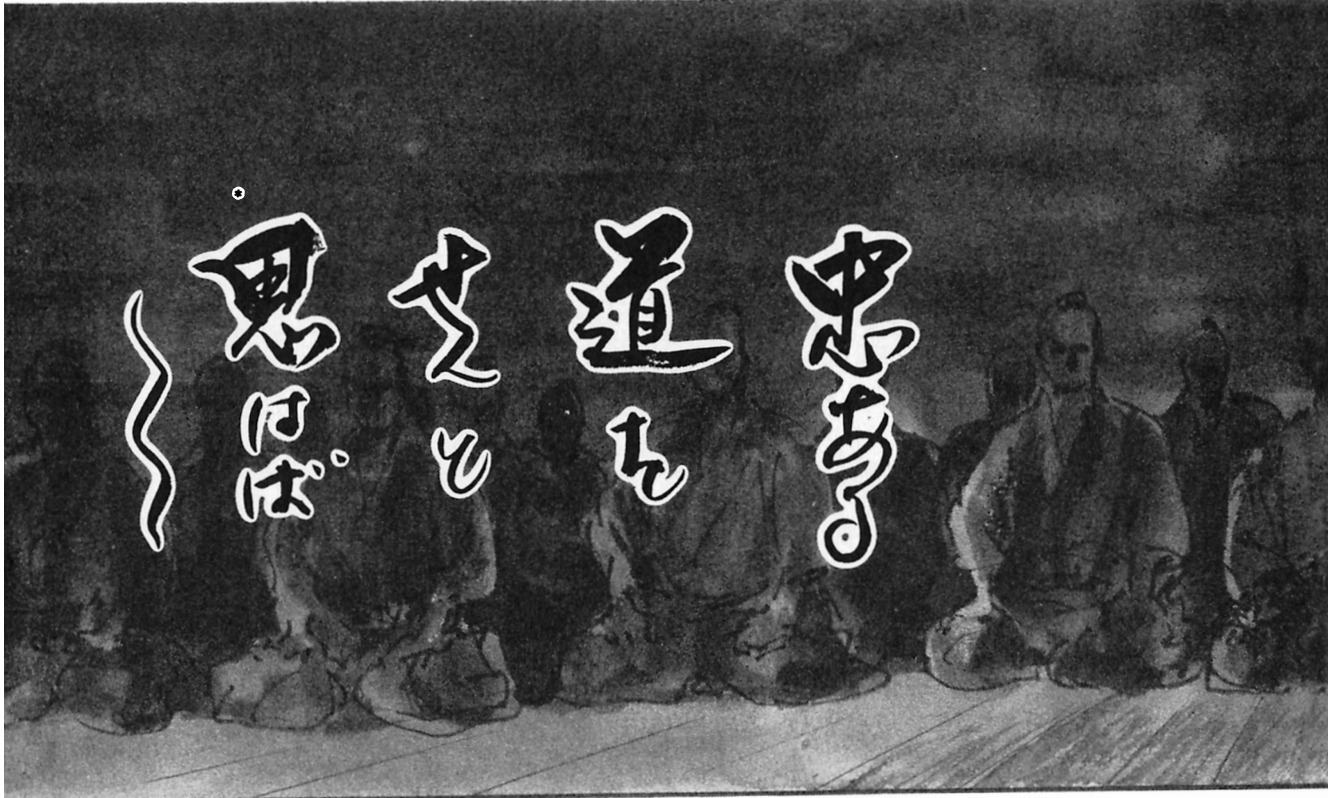 忠ある
道を
せんと
*思はば
〜